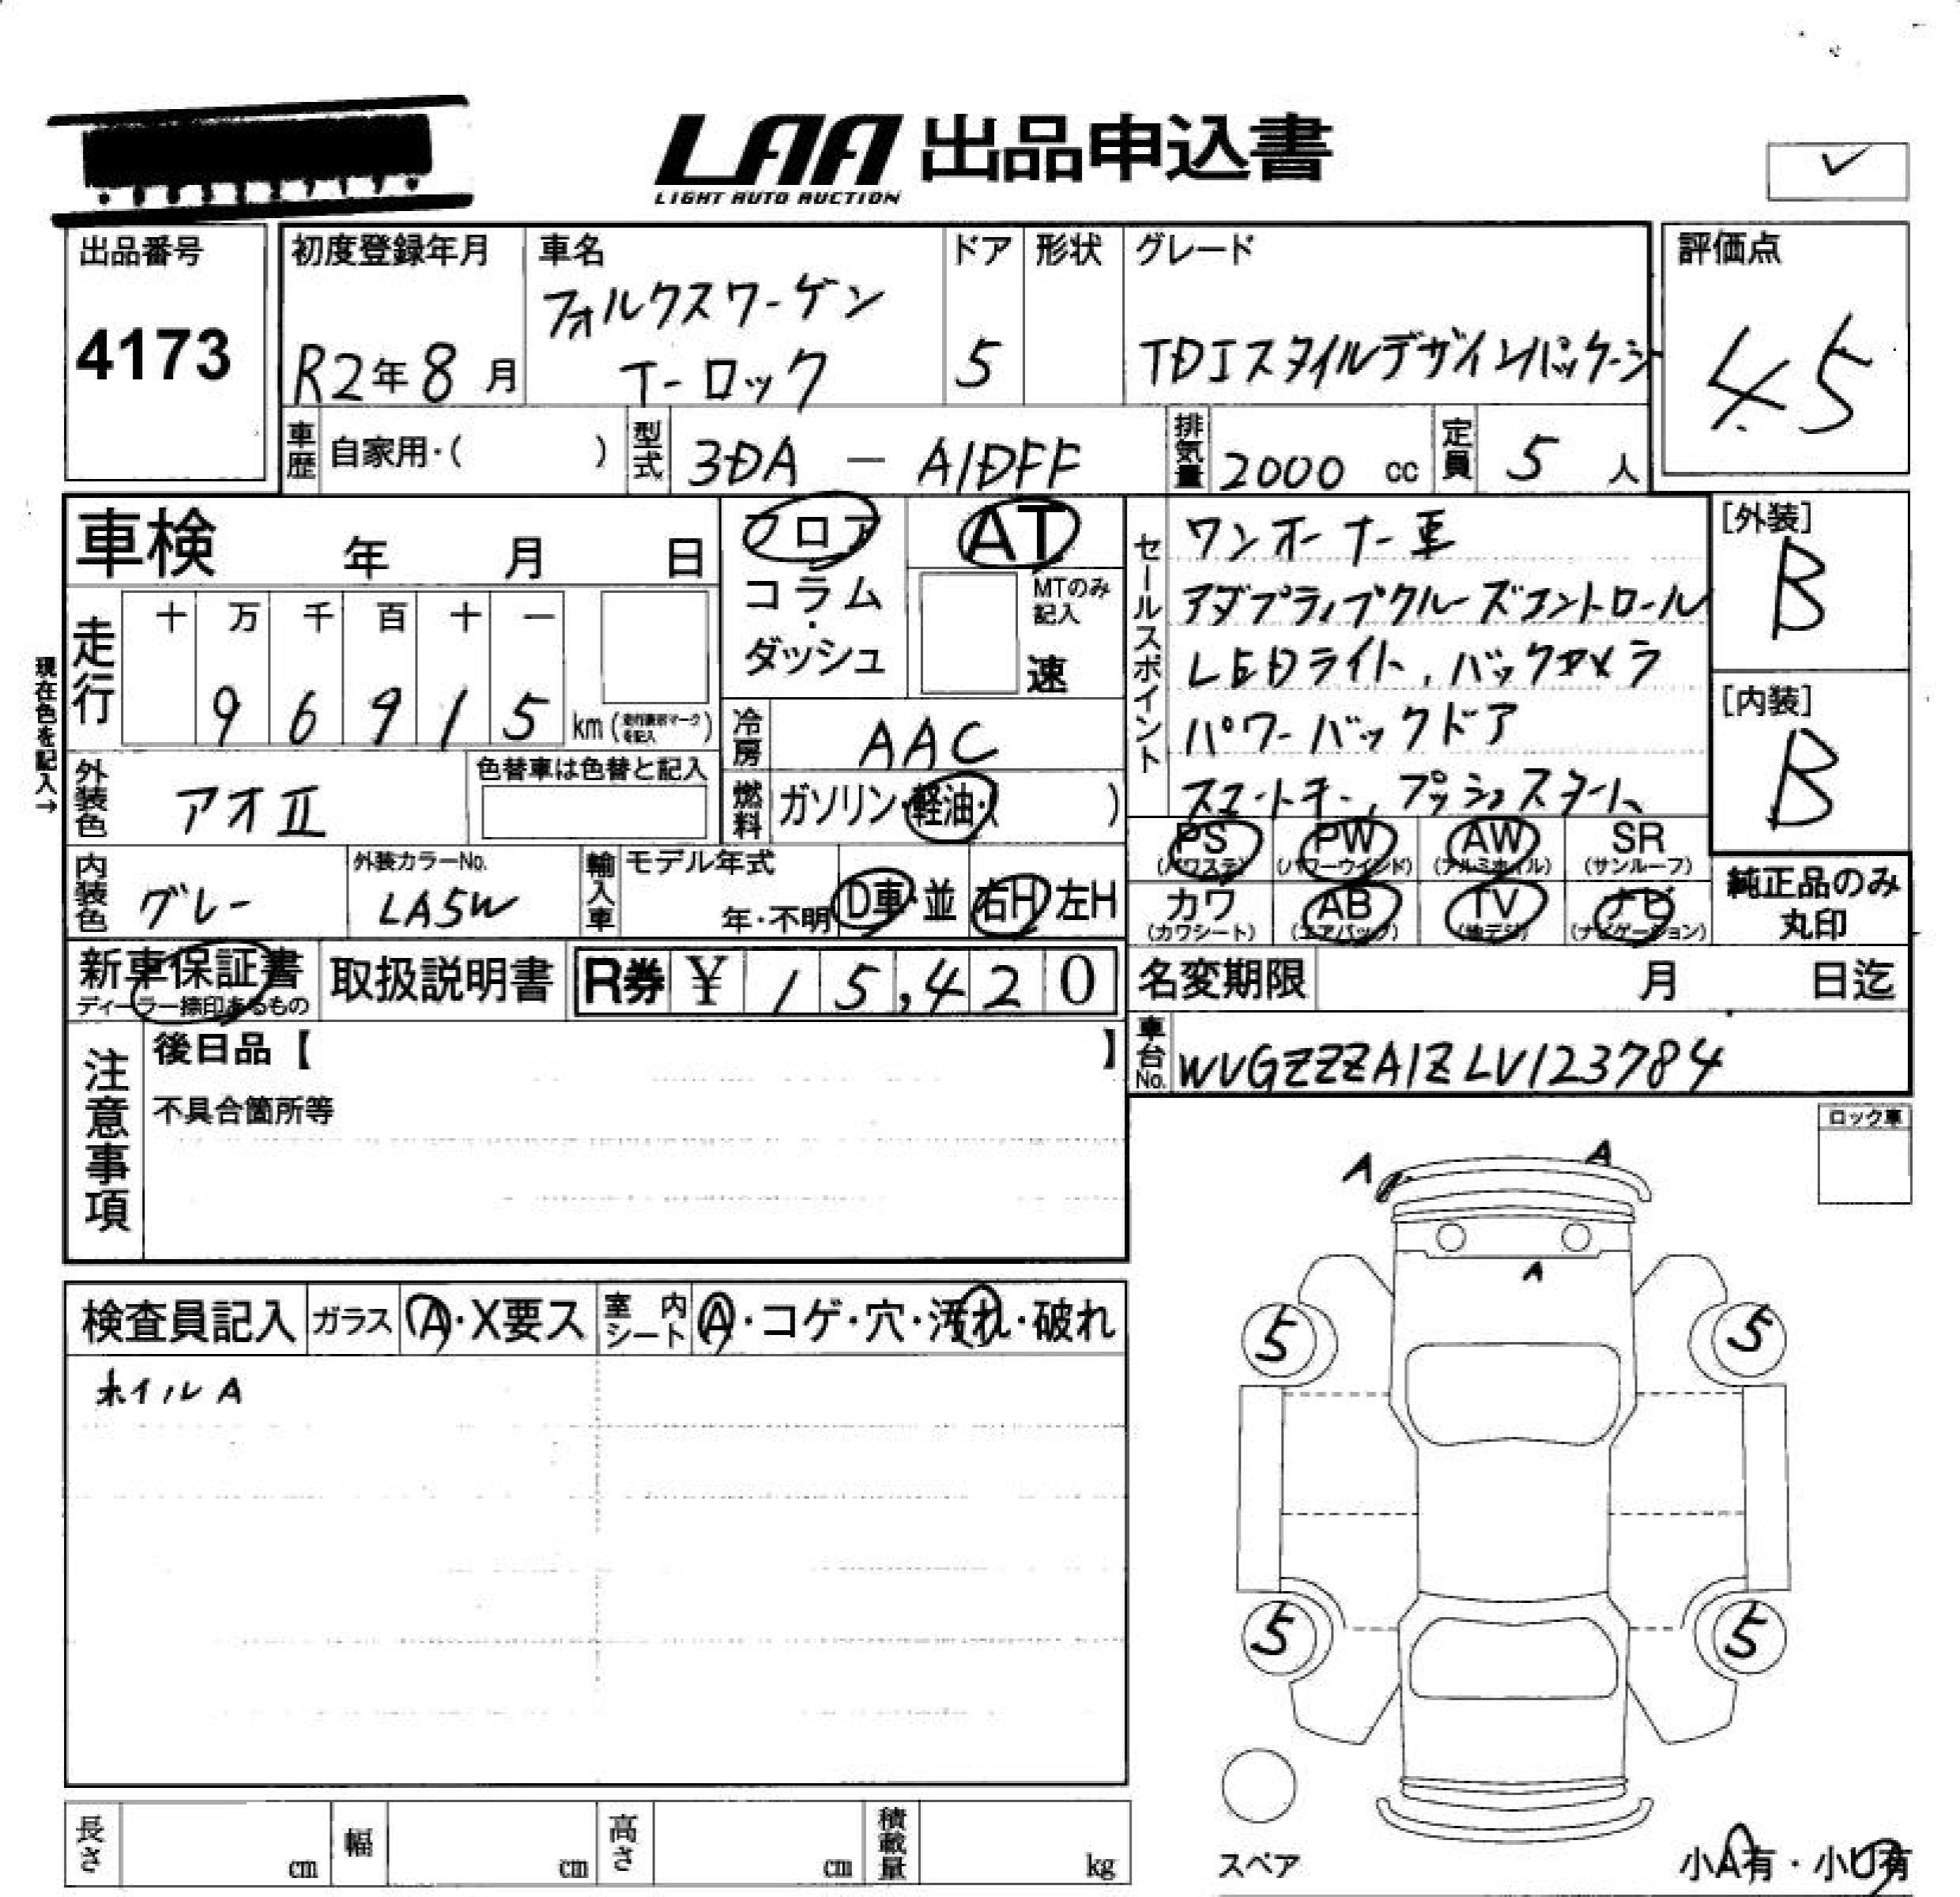 LAA 出品申込書
LIGHT AUTO AUCTION
出品番号
4173
初度登録年月
R2年8月
車名
フォルクスワーゲン
T-ロック
ドア
5
形状
グレード
TDIスタイルデザインパッケージ
評価点
4.5
車歴 自家用・( )
型式 3DA - A1DFF
排気量 2000 cc
定員 5 人
車検 年 月 日
フロア
コラム
・
ダッシュ
AT
MTのみ
記入
速
セールスポイント
ワンオーナー車
アダプティブクルーズコントロール
LEDライト, バックカメラ
パワーバックドア
スマートキー, プッシュスタート
[外装]
B
[内装]
B
現在色を記入→
走行
十 万 千 百 十 一
9 6 9 1 5 km
冷房 AAC
燃料 ガソリン・軽油・( )
外装色 アオII
色替車は色替と記入
内装色 グレー
外装カラーNo.
LA5W
輸入車
モデル年式
年・不明
D車・並
右H 左H
PS
(パワステ)
PW
(パワーウインド)
AW
(アルミホイル)
SR
(サンルーフ)
カワ
(カワシート)
AB
(エアバッグ)
TV
(地デジ)
ナビ
(ナビゲーション)
純正品のみ
丸印
新車保証書
ディーラー捺印あるもの
取扱説明書
R券 ¥ 15,420
名変期限 月 日迄
車台No. WVGZZZA1ZLV123784
注意事項
後日品【 】
不具合箇所等
ロック車
A A
A
5 5
5 5
検査員記入
ガラス A・X要ス
室内シート A・コゲ・穴・汚れ・破れ
ホイルA
スペア
小A有・小U有
長さ cm
幅 cm
高さ cm
積載量 kg